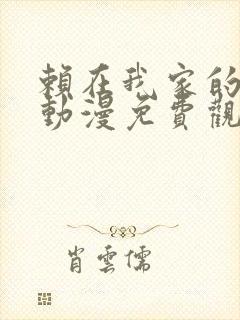 賴在我家的
動漫免費觀
肖雲儒